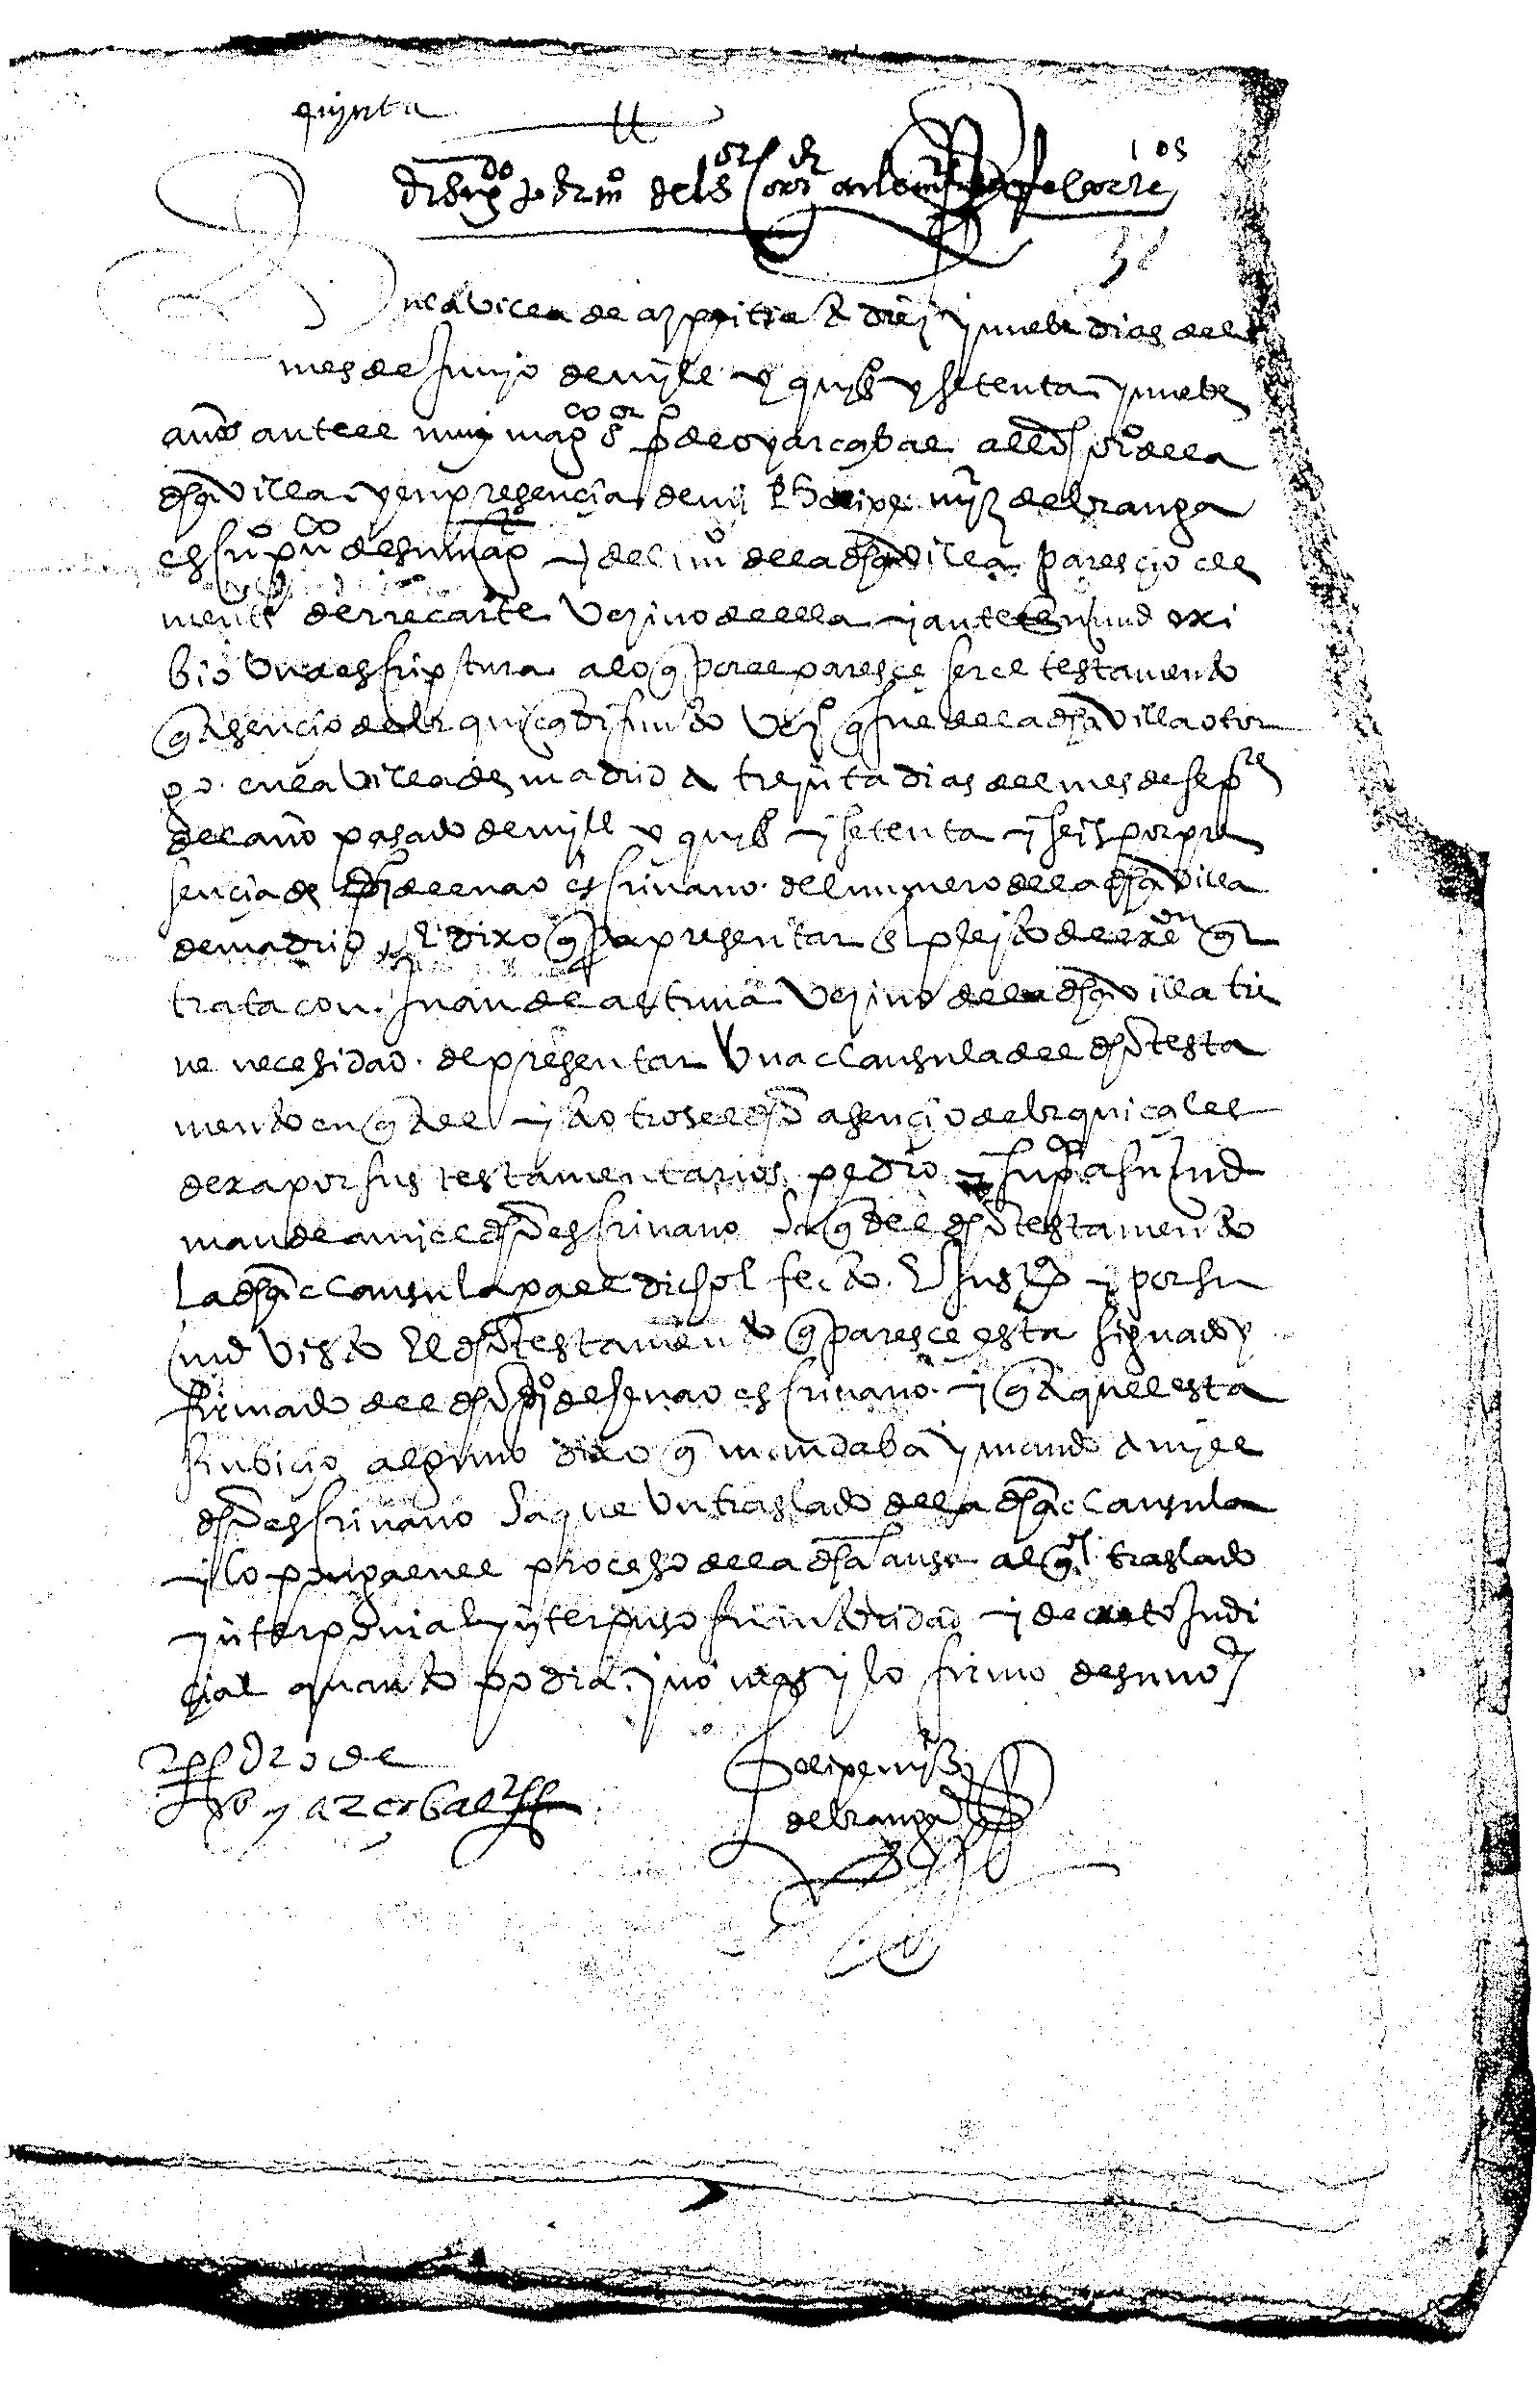 quynta
105
38
en la villa de azpeitia a diez y nuebe dias del
mes de junyo de myll e quis y setenta y nuebe
años ante el muy magco sor po de oyarçabal allde hordo de la
dha villa y en presençia de my Felipe mrz de branga
escriuo puco de su magd y del nuo de la dha villa paresçio cle
mente de rrecarte vezino de ella y ante su md exi
bio vna escriptura a lo q por el paresçe ser el testamento
q asençio de lequiça difunto vezo q fue de la dha villa otor
go en la villa de madrid a treynta dias del mes de sepre
del año pasado de myll e quis y setenta y seis por pre
sençia de di de henao escriuano del numero de la dha villa
de madrid E dixo q pa presentar en el pleito de exen q
trata con juan de astina vezino de la dha villa tie
ne neçesidad de presentar vna clausula del dho testa
mento en q a el y a otros el dho asençio de lequiça les
dexa por sus testamentarios pedio y supco a su md
mande a my el dho escriuano saq del dho testamento
la dha clausula pa el dicho efecto E justa y por su
md visto El dho testamento q paresçe esta signado y
firmado del dho do de henao escriuano y q aquel esta
sin biçio alguno dixo q mandaba y mando a my el
dho escriuano saque vn traslado de la dha clausula
y lo ponga en el proçeso de la dha causa al ql traslado
ynterponia y ynterpuso su autoridad y decreto judi
çial quanto podia y no mas y lo firmo de su no
pedro de
oyarcabal
Felipe mrz
de branga